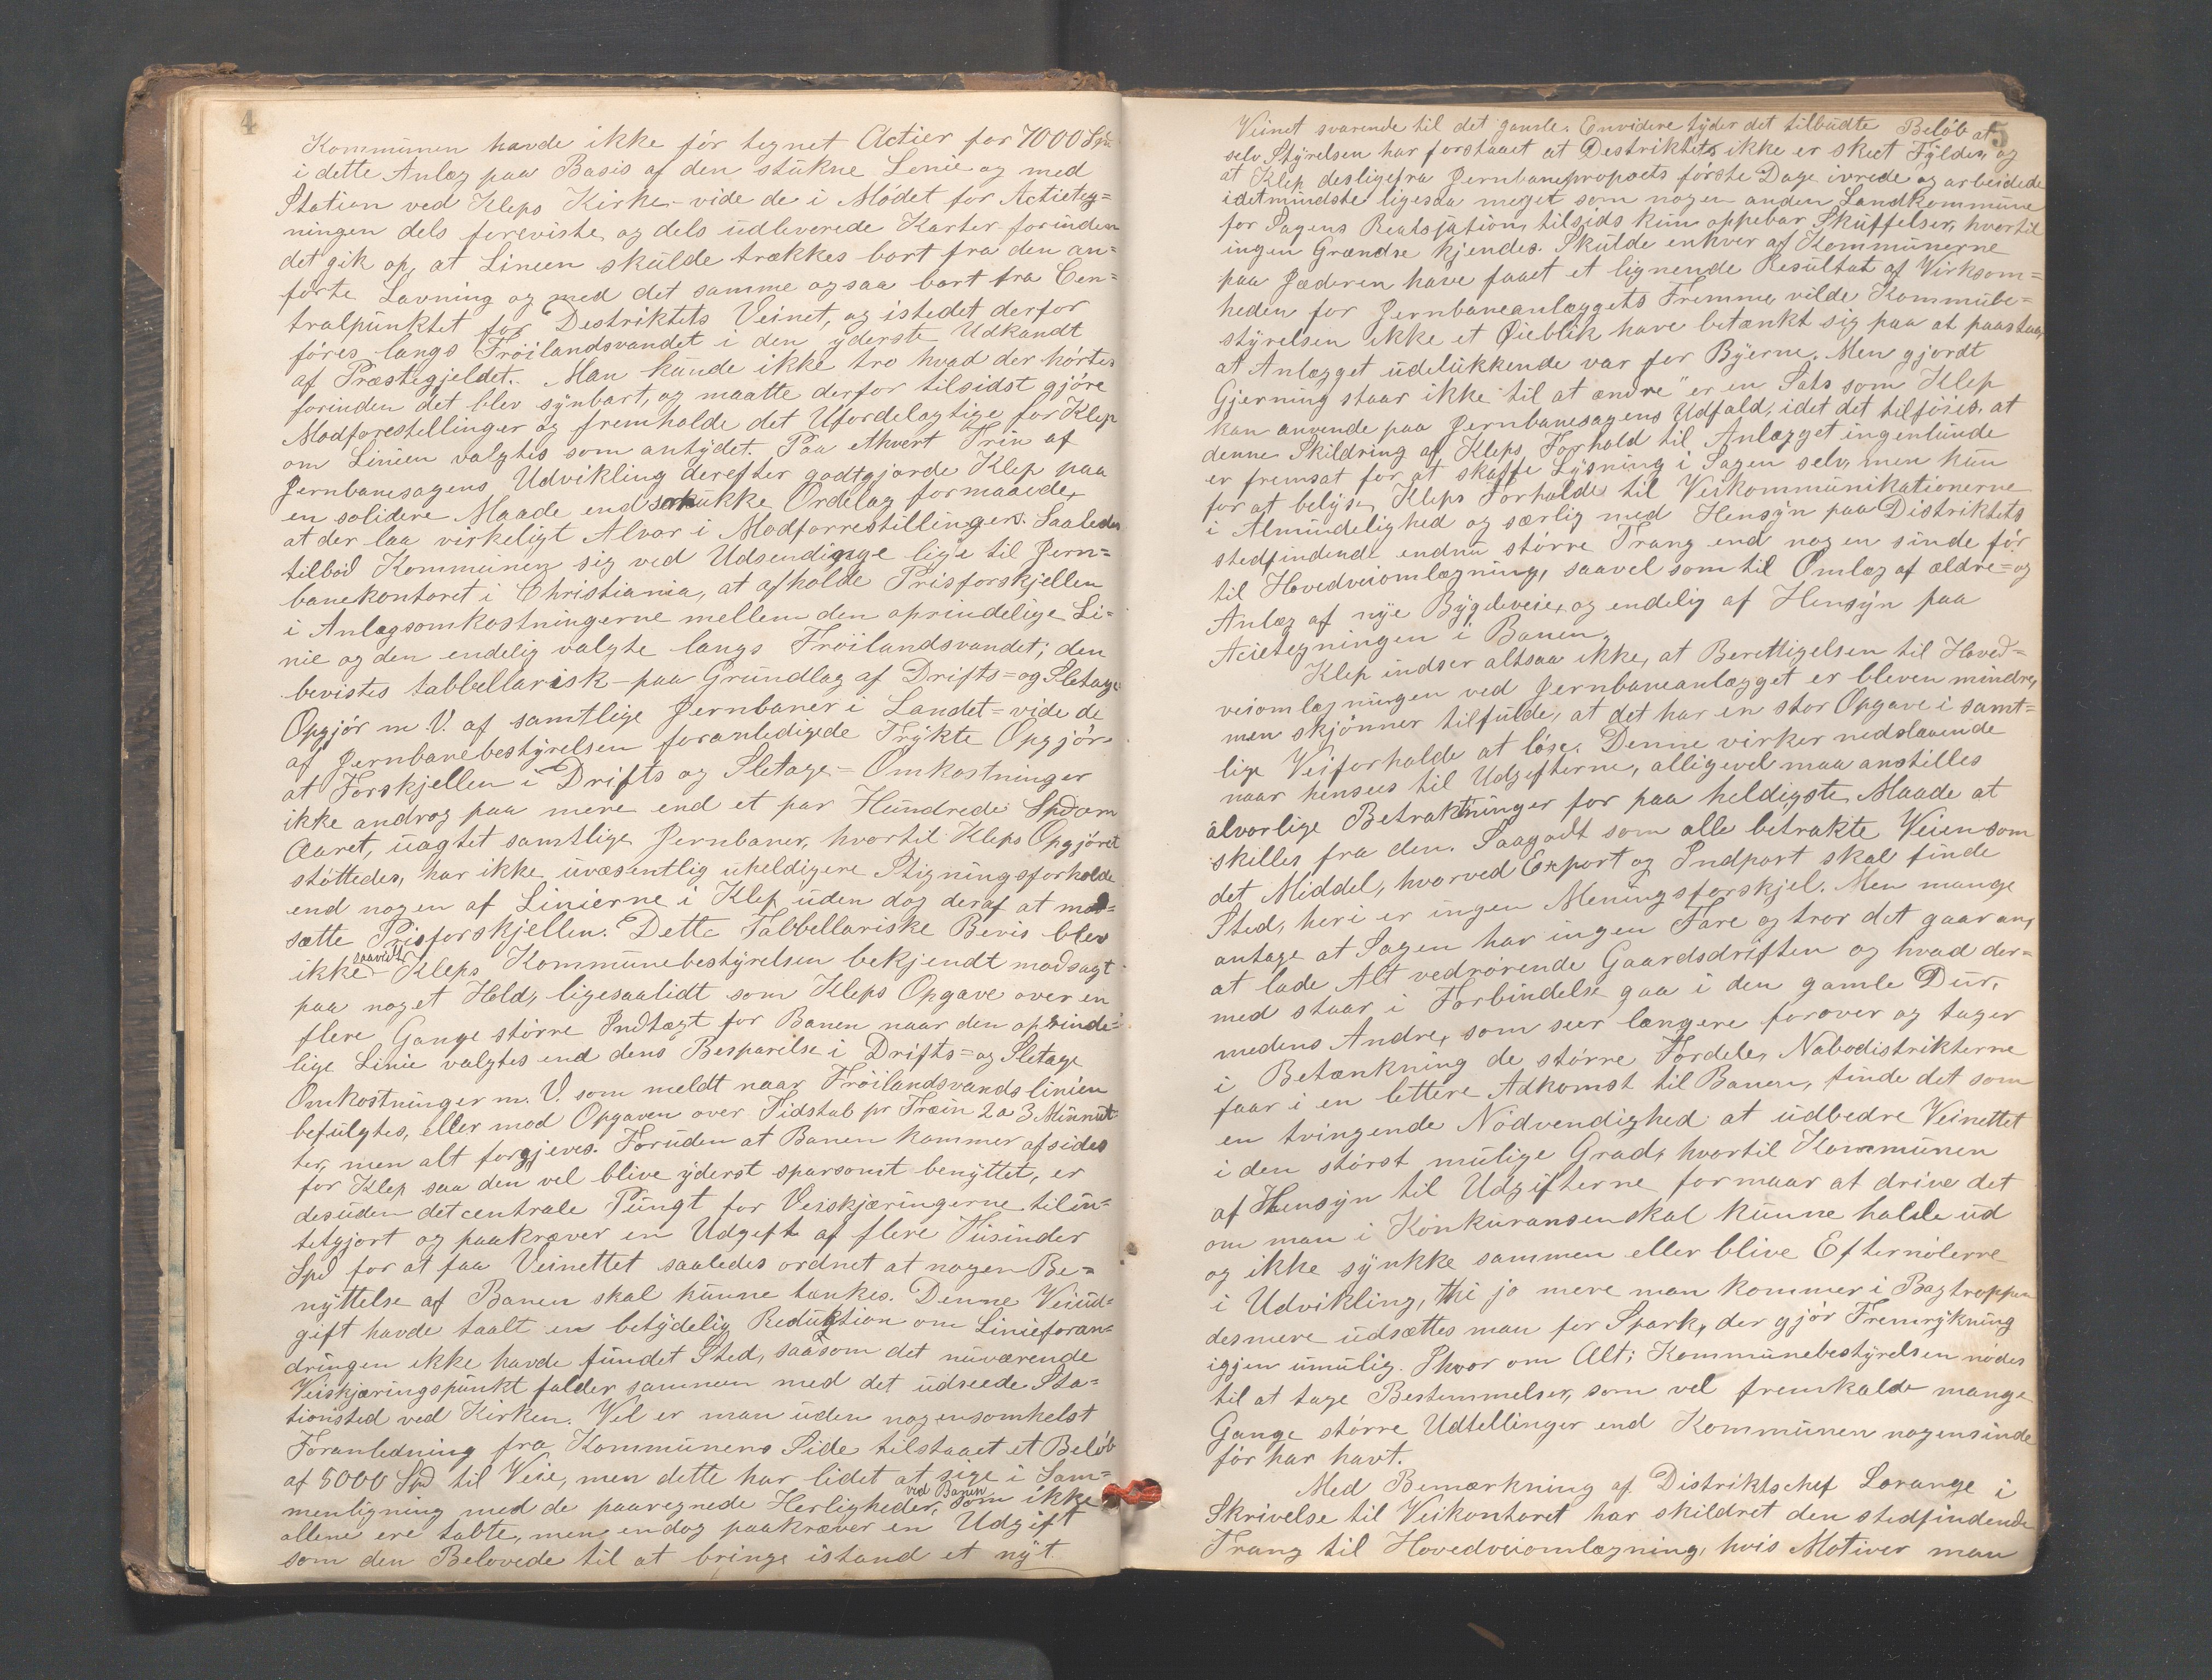 4
Kommunen havde ikke før tegnet Actier for 7000 Spd
i dette Anlæg paa Basis af den stukne Linie og med
Station ved Kleps Kirke – vide de i Mødet for Actieteg=
ningen dels foreviste og dels udleverede Karter forinden
det gik op, at Linien skulde trækkes bort fra den an=
førte Lavning og med det samme ogsaa bort fra Cen=
tralpunktet for Destriktets Veinet, og istedet derfor
føres langs Frøilandsvandet i den yderste Udkandt
af Præstegjeldet. Man kunde ikke tro hvad der hørtes
forinden det blev synbart, og maatte derfor tilsidst gjøre
Modforestellinger og fremholde det Ufordelagtige for Klep
om Linien valgtes som antydet. Paa ethvert Trin af
Jernbanesagens Udvikling derefter godtgjorde Klep paa
en solidere Maade end smukke Ordelag formaaede,
at der laa virkeligt Alvor i Modforrestillingen. Saaledes
tilbød Kommunen sig ved Udsendinge lige til Jern=
banekontoret i Christiania, at afholde Prisforskjellen
i Anlægsomkostningerne mellem den oprindelige Li=
nie og den endelig valgte langs Frøilandsvandet; den
bevistes tabbellarisk – paa Grundlag af Drifts= og Sletage
Opgjør m. V. af samtlige Jernbaner i Landet – vide de
af Jernbanebestyrelsen foranledigede Trykte Opgjør –
at Forskjellen i Drifts og Sletage = Omkostninger
ikke androg paa mere end et par Hundrede Spd om
Aaret, uagtet samtlige Jernbaner, hvortil Kleps Opgjøret
støttedes, har ikke uvæsentlig uheldigere Stigningsforholde
end nogen af Linierne i Klep uden dog deraf at mod=
sætte Prisforskjellen. Dette Tabbellariske Bevis blev
ikke saavidt Kleps Kommunebestyrelsen bekjendt modsagt
paa noget Hold, ligesaalidt som Kleps Opgave over en
flere Gange større Indtægt for Banen naar den oprinde=
lige Linie valgtes end dens Besparelse i Drifts= og Sletage
Omkostninger m. V. som meldt naar Frøilandsvandslinien
befulgtes, eller mod Opgaven over Tidstab pr Træin 2 a 3 Minnut=
ter, men alt forgjeves. Foruden at Banen kommer afsides
for Klep saa den vel blive yderst sparsomt benyttet, er
desuden det centrale Pungt for Veiskjæringerne tilin=
tetgjort og paakræver en Udgeft af flere Tusinder
Spd for at faa Veinettet saaledes ordnet at nogen Be=
nyttelse af Banen skal kunne tænkes. Denne Veiud=
gift havde taalt en betydelig Reduktion om Linieforan=
dringen ikke havde fundet Sted, saasom det nuværende
Veiskjæringspunkt falder sammen med det udseede Sta=
tionsted ved Kirken. Vel er man uden nogensomhelst
Foranledning fra Kommunens Side tilstaaet et Beløb
af 5000 Spd til Veie, men dette har lidet at sige i Sam=
menligning med de paaregnede Herligheder, ved Banen som ikke
allene ere tabte, men endog paakræver en Udgift
som den Belovede til at bringe istand et nyt
5
Veinet svarende til det gamle. Envidere tyder det tilbudte Beløb at
selv Styrelsen har forstaaet at Destriktets ikke er skeet Fylder, og
at Klep desligefra Jernbanepropoets første Dage ivrede og arbeidede
idetmindste ligesaa meget som nogen anden Landkommune
for Sagens Realisation, tilsids kun oppebar Skuffelser, hvortil
ingen Grændse kjendes. Skulde enhver af Kommunerne
paa Jæderen have faaet et lignende Resultat af Virksom=
heden for Jernbaneanlæggets Fremme, vilde Kommübe=
styrelsen ikke et Øieblik have betænkt sig paa at paastaa,
at Anlægget udelukkende var for Byerne. Men gjordt
Gjerning staar ikke til at ændre" er en Sats som Klep
kan anvende paa Jernbanesagens Udfald, idet det tilføies, at
denne Skildring af Kleps Forhold til Anlægget ingenlunde
er fremsat for at skaffe Lysning i Sagen selv, men kun
for at belyse Kleps Forholde til Veikommunikationerne
i Almindelighed og særlig med Hensyn paa Distriktets
stedfindende endnu større Trang end nogen sinde før
til Hovedveiomlægning, saavel som til Omlæg af ældre= og
Anlæg af nye Bygdeveie, og endelig af Hensyn paa
Acietegningen i Banen.
Klep indser altsaa ikke, at Berettigelsen til Hoved=
veiomlægningen ved Jernbaneanlægget er bleven mindre,
men skjønner tilfulde, at det har en stor Opgave i samt=
lige Veiforholde at løse. Denne virker nedslaaende
naar hensees til Udgefterne, alligevel maa anstilles
alvorlige Betraktninger for paa heldigste Maade at
skilles fra den. Saagodt som alle betrakte Veien som
det Middel, hvorved Export og Indport skal finde
Sted, heri er ingen Meningsforskjel. Men mange
antage at Sagen har ingen Fare og tror det gaar an,
at lade Alt vedrørende Gaardsdriften og hvad der=
med staar i Forbindelse gaa i den gamle Dur,
medens Andre, som seer længere forover og tager
i Betænkning de større Fordele, Nabodistrikterne
faar i en lettere Adkomst til Banen, finde det som
en tvingende Nødvendighed at udbedre Veinettet
i den størst mulige Grad, hvortil Kommunen
af Hensyn til Udgifterne formaar at drive det
om man i Konkuransen skal kunne holde ud
og ikke synkke sammen eller blive Efternølerne
i Udvikling, thi jo mere man kommer i Bagtroppen
desmere udsættes man for Spark, der gjør Fremrykning
igjen umulig. Ihvor om Alt; Kommunebestyrelsen nødes
til at tage Bestemmelser, som vel fremkalde mange
Gange større Udtellinger end Kommunen nogensinde
før har havt.
Med Bemærkning af Distriktschef Lorange i
Skrivelse til Veikontoret har skildret den stedfindende
Trang til Hovedveiomlægning, hvis Motiver man